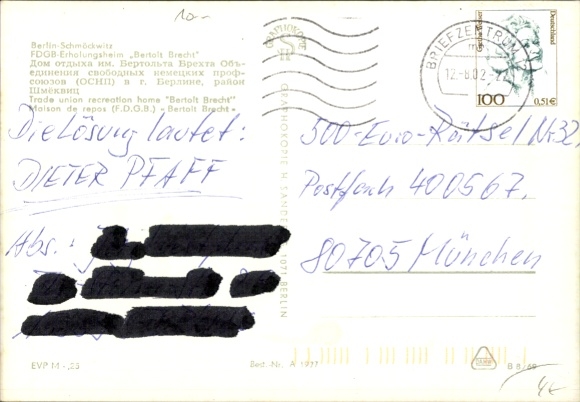 10.-
Berlin-Schmöckwitz
FDGB-Erholungsheim „Bertolt Brecht"
Дом отдыха им. Бертольта Брехта Объ-
единения свободных немецких проф-
союзов (ОСНП) в г. Берлине, район
Шмёквиц
Trade union recreation home "Bertolt Brecht"
Maison de repos (F.D.G.B.) « Bertolt Brecht »
Die Lösung lautet:
DIETER PFAFF
Abs.:
EVP 14 -,25
Best.-Nr. A 1977
GRAPHOKOPIE
GRAPHOKOPIE H. SANDER
1071 BERLIN
BRIEFZENTRUM
12.-8.02
Deutschland
100
0,51€
500-Euro-Rätsel Nr. 32,
Postfach 400567,
80705 München
B 8/69
4€